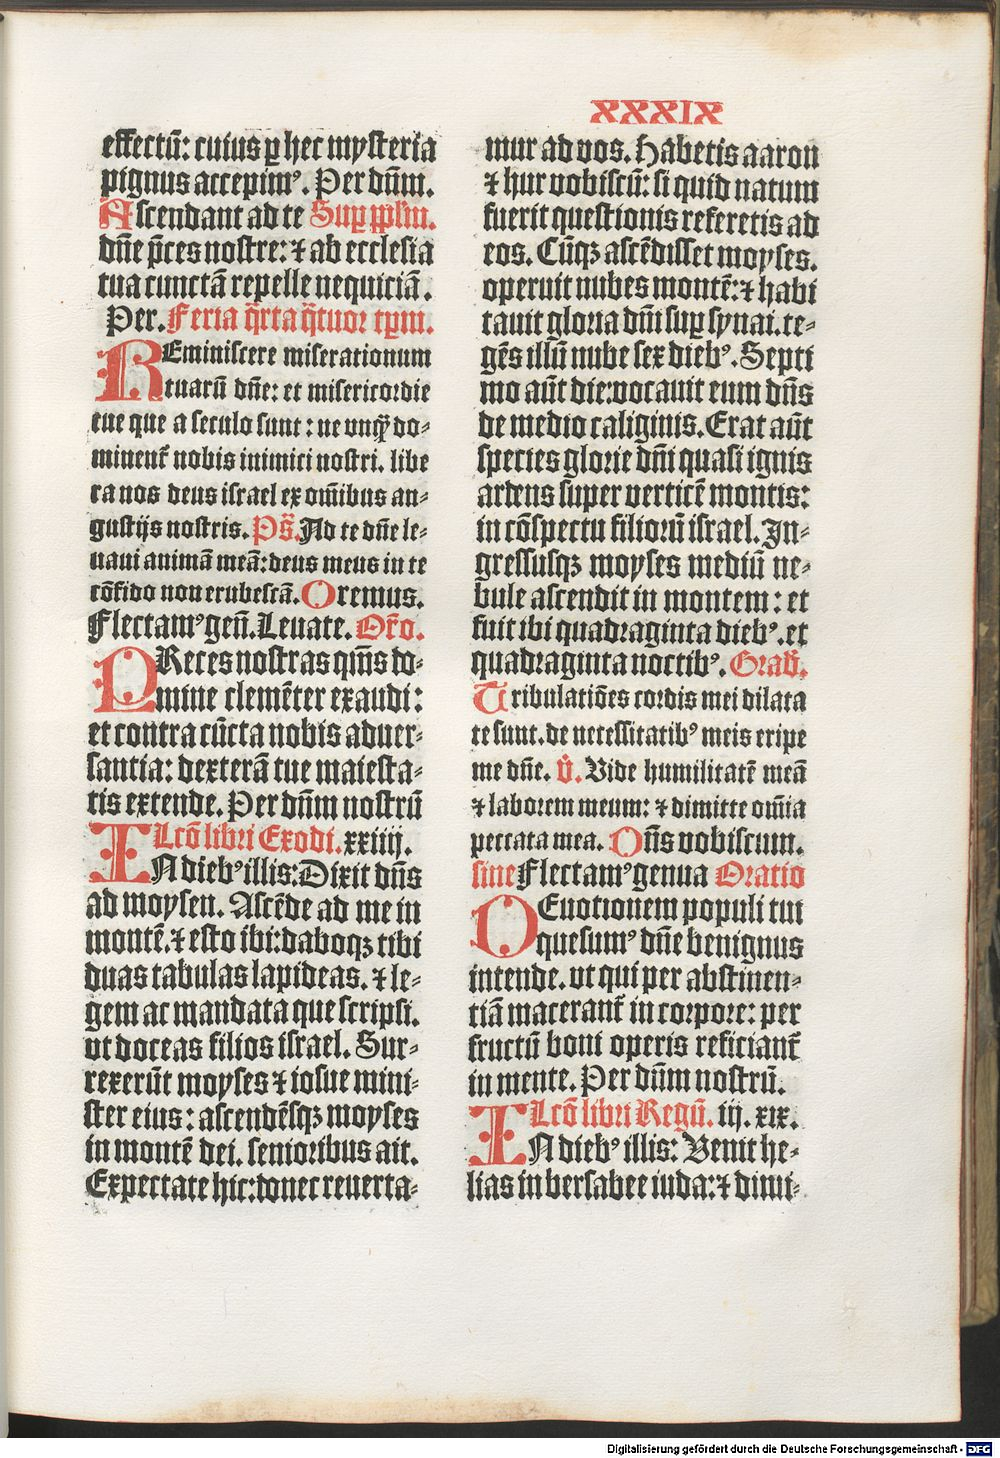 XXXIX
effectū: cuius ꝑ hec mysteria
pignus accepimꝰ. Per dūm.
Ascendant ad te Suꝑ pplm̄.
dn̄e p̄ces nostre: ⁊ ab ecclesia
tua cunctā repelle nequiciā.
Per. Feria q̄rta q̄tuor tꝑm.
REminiscere miserationum
tuarū dn̄e: et misericordie
tue que a seculo sunt: ne vnqͣ̄ do-
minent᷑ nobis inimici nostri. libe
ra nos deus israel ex om̄ibus an-
gustijs nostris. Ps̄. Ad te dn̄e le-
uaui animā meā: deus meus in te
cōfido non erubescā. Oremus.
Flectamꝰ gen̄. Leuate. Or̄o.
PReces nostras qm̄s do-
mine clemēter exaudi:
et contra cūcta nobis aduer-
santia: dexterā tue maiesta-
tis extende. Per dūm nostrū
Lcō libri Exodi. xxiiij.
IN diebꝰ illis: Dixit dn̄s
ad moysen. Ascēde ad me in
montē. ⁊ esto ibi: daboqꝫ tibi
duas tabulas lapideas. ⁊ le-
gem ac mandata que scripsi.
vt doceas filios israel. Sur-
rexerūt moyses ⁊ iosue mini-
ster eius: ascendēsqꝫ moyses
in montē dei. senioribus ait.
Expectate hic: donec reuerta-
mur ad vos. Habetis aaron
⁊ hur vobiscū: si quid natum
fuerit questionis referetis ad
eos. Cūqꝫ ascēdisset moyses.
operuit nubes montē: ⁊ habi
tauit gloria dn̄i suꝑ synai. te-
gēs illū nube sex diebꝰ. Septi
mo aūt die: vocauit eum dn̄s
de medio caliginis. Erat aūt
species glorie dn̄i quasi ignis
ardens super verticē montis:
in cōspectu filiorū israel. In-
gressusqꝫ moyses mediū ne-
bule ascendit in montem: et
fuit ibi quadraginta diebꝰ. et
quadraginta noctibꝰ. Grad̄.
Tribulatiōes cordis mei dilata
te sunt. de necessitatibꝰ meis eripe
me dn̄e. v̄. Vide humilitatē meā
⁊ laborem meum: ⁊ dimitte om̄ia
peccata mea. Dn̄s vobiscum.
sine Flectamꝰ genua Oratio
DEuotionem populi tui
quesumꝰ dn̄e benignus
intende. vt qui per abstinen-
tiā macerant᷑ in corpore: per
fructū boni operis reficiant᷑
in mente. Per dūm nostrū.
Lcō libri Regū. iij. xix.
IN diebꝰ illis: Venit he-
lias in bersabee iuda: ⁊ dimi-
Digitalisierung gefördert durch die Deutsche Forschungsgemeinschaft - DFG